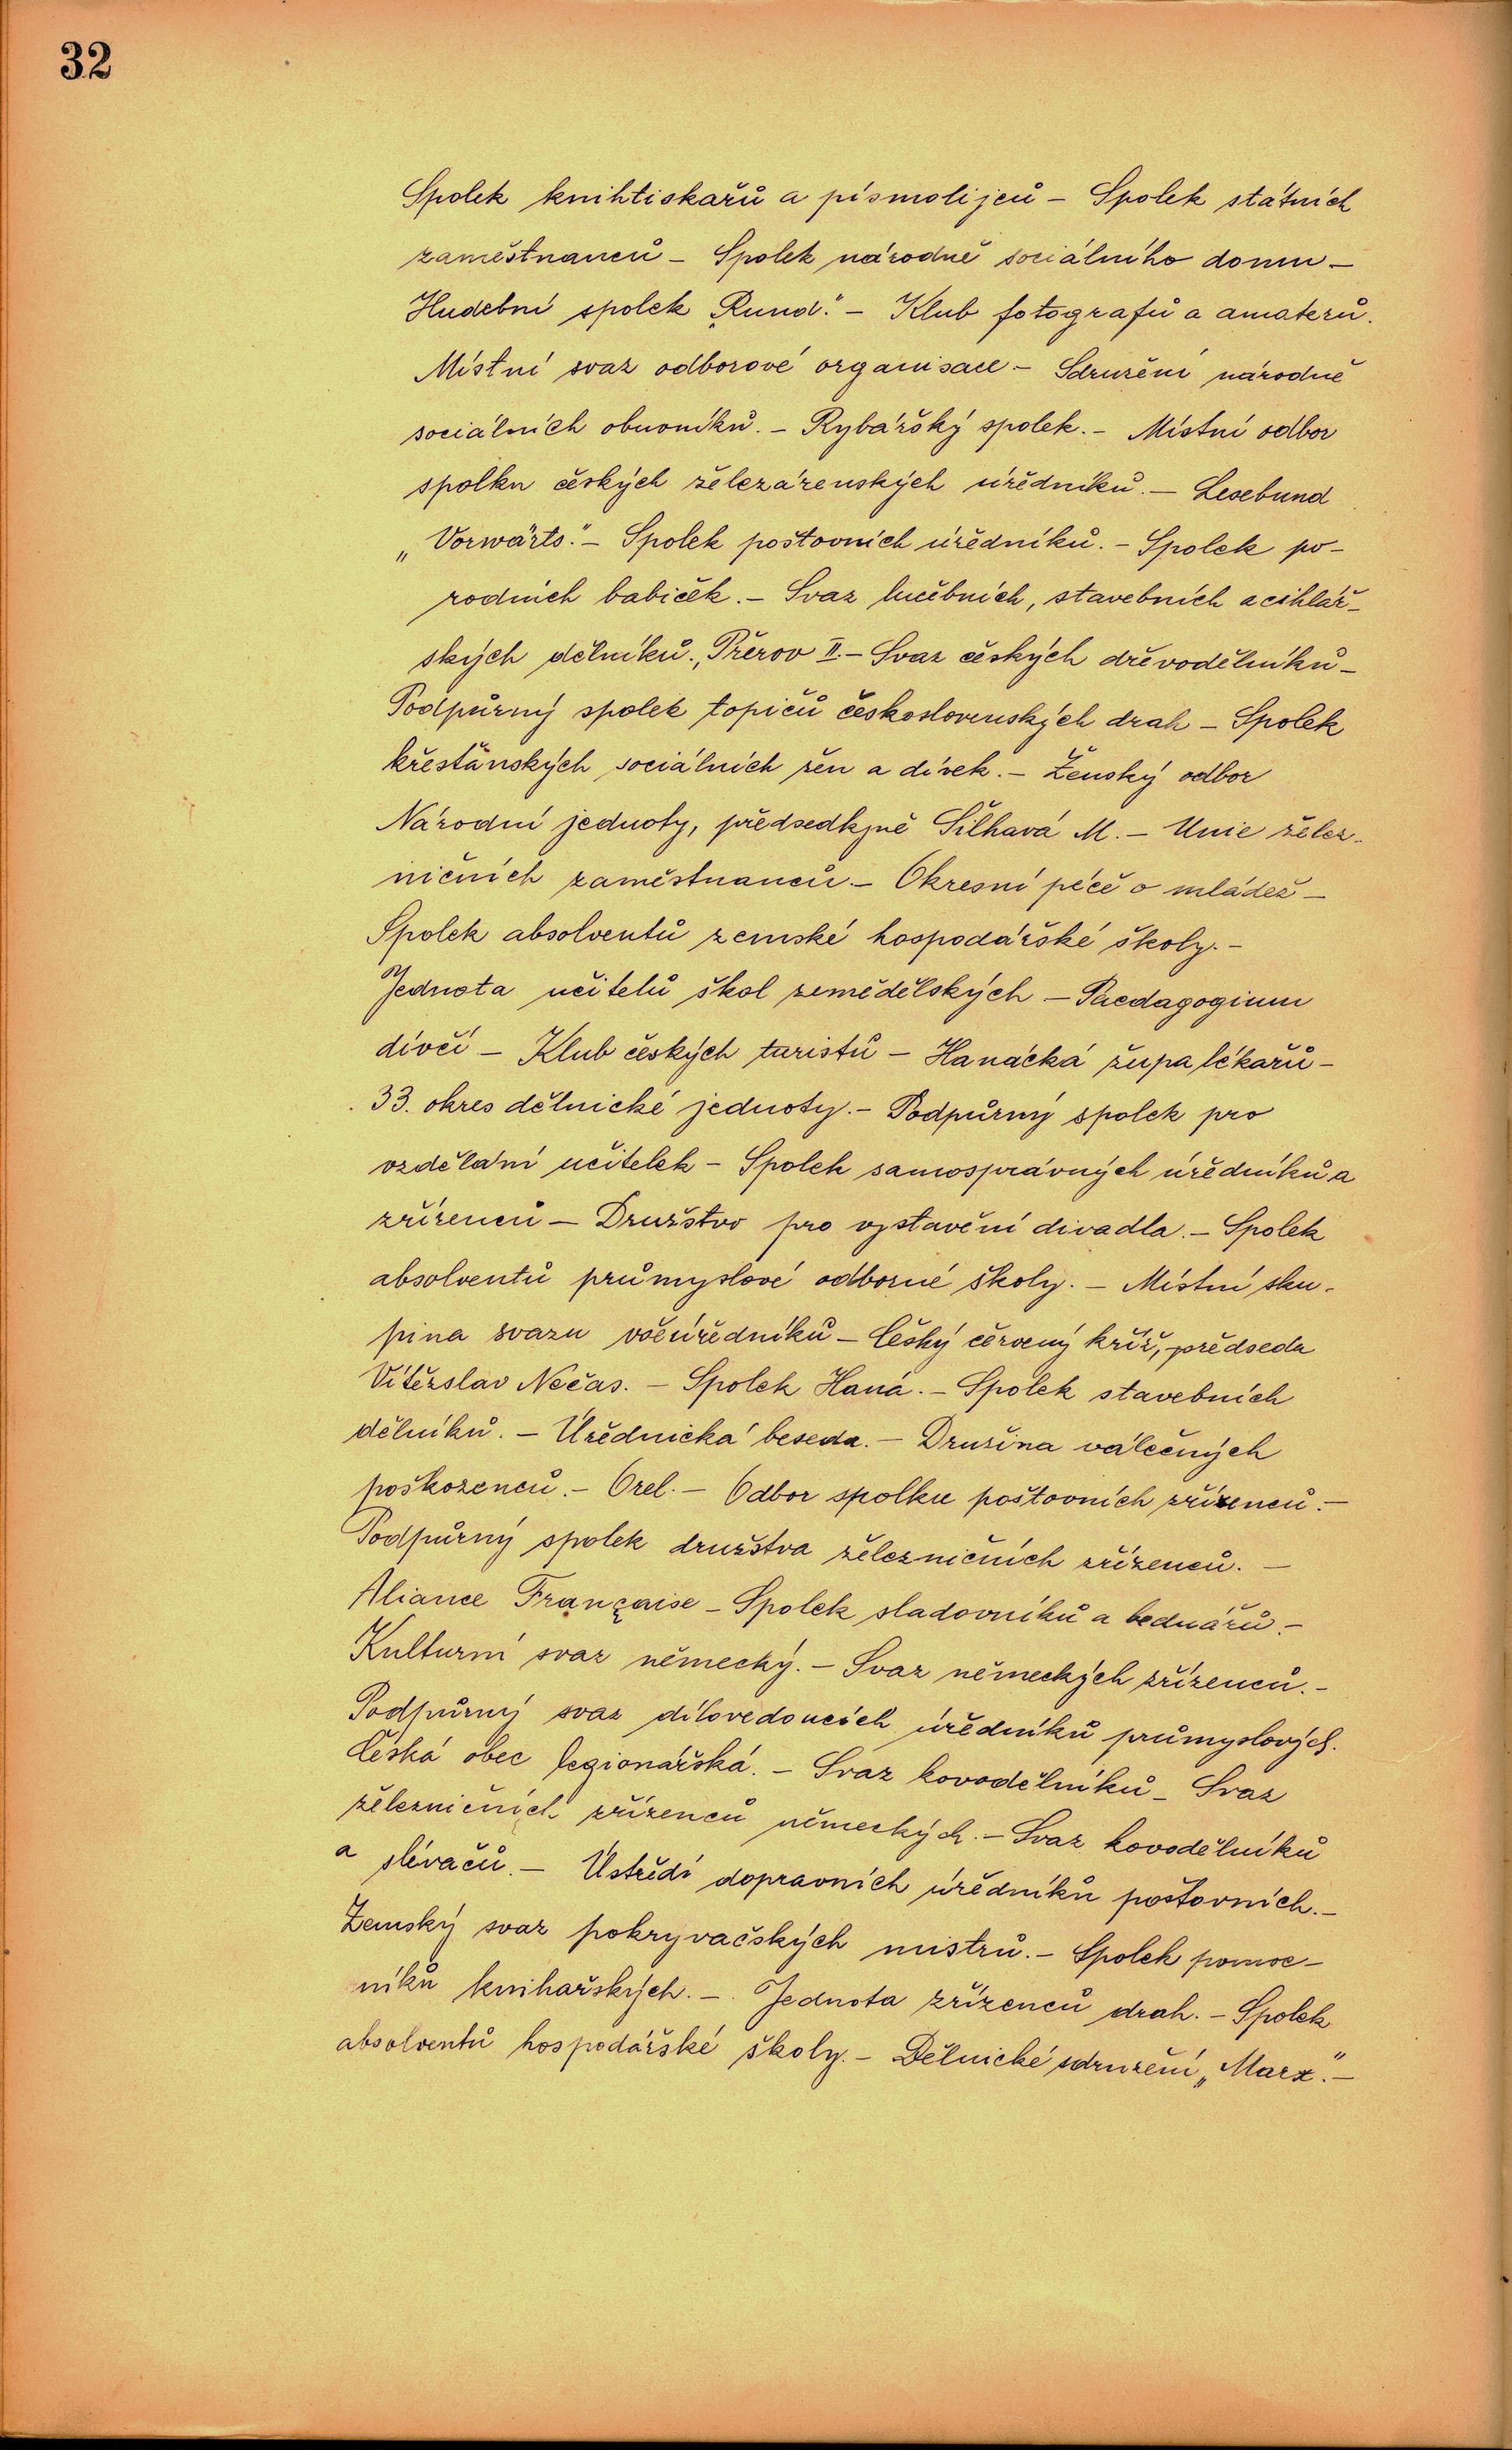 32
Spolek knihtiskařů a písmolijců – Spolek státních
zaměstnanců – Spolek národně sociálního domu –
Hudební spolek „Rund." – Klub fotografů a amaterů.
Místní svaz odborové organisace – Sdružení národně
sociálních obuvníků. – Rybářský spolek. – Místní odbor
spolku českých železárenských úředníků. – Lesebund
„Vorwärts." – Spolek poštovních úředníků. – Spolek po-
rodních babiček. – Svaz lučebních, stavebních a cihlář-
ských dělníků., Přerov II. – Svaz českých dřevodělníků –
Podpůrný spolek topičů československých drah – Spolek
křesťanských sociálních žen a dívek. – Ženský odbor
Národní jednoty, předsedkyně Šilhavá M. – Unie želez-
ničních zaměstnanců. – Okresní péče o mládež –
Spolek absolventů zemské hospodářské školy. –
Jednota učitelů škol zemědělských – Paedagogium
dívčí – Klub českých turistů – Hanácká župa lékařů –
33. okres dělnické jednoty. – Podpůrný spolek pro
vzdělání učitelek – Spolek samosprávných úředníků a
zřízenců – Družstvo pro vystavění divadla. – Spolek
absolventů průmyslové odborné školy. – Místní sku-
pina svazu všeúředníků – Český červený kříž, předseda
Vítězslav Nečas. – Spolek Haná. – Spolek stavebních
dělníků. – Úřednická beseda. – Družina válečných
poškozenců. – Orel. – Odbor spolku poštovních zřízenců. –
Podpůrný spolek družstva železničních zřízenců. –
Aliance Française – Spolek sladovníků a bednářů. –
Kulturní svaz německý. – Svaz německých zřízenců. –
Podpůrný svaz dílovedoucích úředníků průmyslových.
Česká obec legionářská. – Svaz kovodělníků – Svaz
železničních zřízenců německých. – Svaz kovodělníků
a slévačů. – Ústředí dopravních úředníků poštovních. –
Zemský svaz pokryvačských mistrů. – Spolek pomoc-
níků knihařských. – Jednota zřízenců drah. – Spolek
absolventů hospodářské školy. – Dělnické sdružení „Marx". –